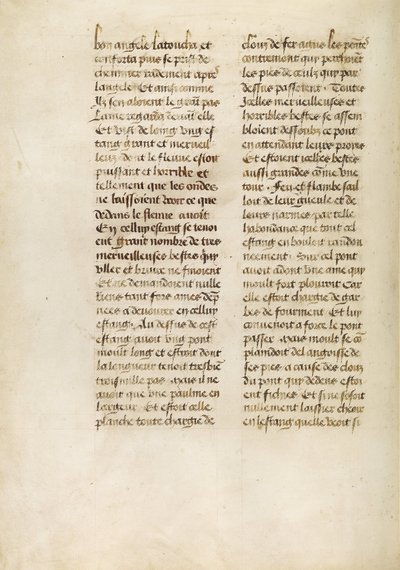 bon angele latoucha et
conforta puis se prist de
cheminer radement apres
langele Et ainsi comme
Ilz sen aloient le grant pas
Lame regarda deuant elle
Et vist de loing vng es
tang grant et merueil
leux dont le fleuue estoit
puissant et horrible et
tellement que les ondes
ne laissoient veoir ce que
dedans le fleuue auoit
En celluy estang se tenoi
ent grant nombre de tres
merueilleuses bestes quy
vller et bruire ne finoient
Et ne demandoient nulle
riens tant fors ames dāp
nees a deuourer en celluy
estang Au dessus de cest
estang auoit vng pont
moult long et estroit dont
la longueur tenoit tresbiē
trois mille pas mais il ne
auoit que vne paulme en
largeur Et estoit celle
planche toute chargie de
clouz de fer agus les poītes
contremont qui perchoiēt
les pies de ceulz quy par
dessus passoient Toutes
Icelles merueilleuses et
horribles bestes se assem
bloient dessoubz ce pont
en attendant leurs proies
Et estoient icelles bestes
aussi grandes come vne
tour Feu et flambe sail
loit de leur gueule et de
leurs narines par telle
habondance que tout cel
estang en bouloit randon
neement Sur cel pont
auoit adont vne ame quy
moult fort plouroit Car
elle estoit chargie de gar
bes de fourment Et luy
conuenoit a force le pont
passer mais moult se cō
plaindoit del angoisse de
ses pies a cause des clouz
du pont quy dedens estoi
ent fichies Et si ne sosoit
nullement laissier cheoir
en lestang quelle veoit si